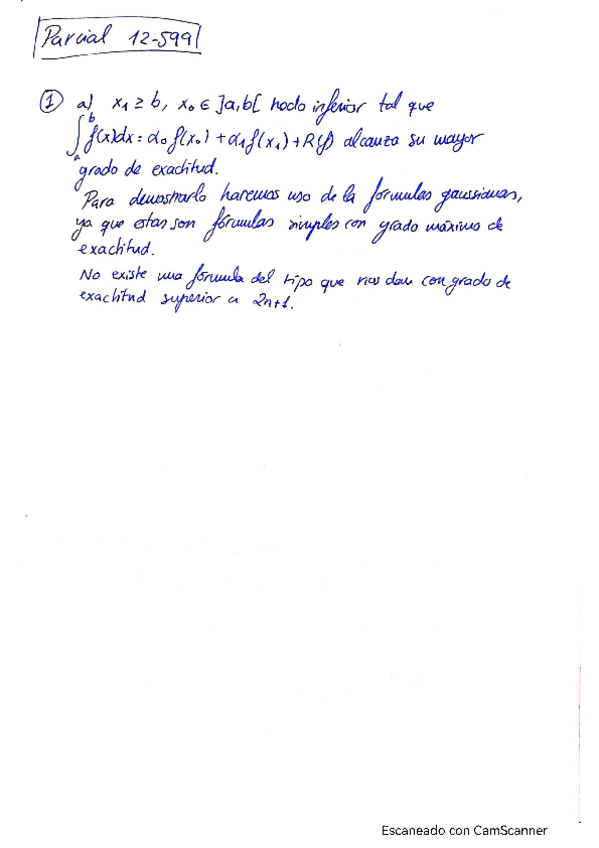 Parcial 12-S99
① a) x₁ ≥ b, x₀ ∈ ]a,b[ nodo inferior tal que
∫ₐᵇ f(x)dx = α₀ f(x₀) + α₁ f(x₁) + R(f) alcanza su mayor
grado de exactitud.
Para demostrarlo haremos uso de la formulas gaussianas,
ya que estas son fórmulas simples con grado máximo de
exactitud.
No existe una fórmula del tipo que nos dan con grado de
exactitud superior a 2n+1.
Escaneado con CamScanner